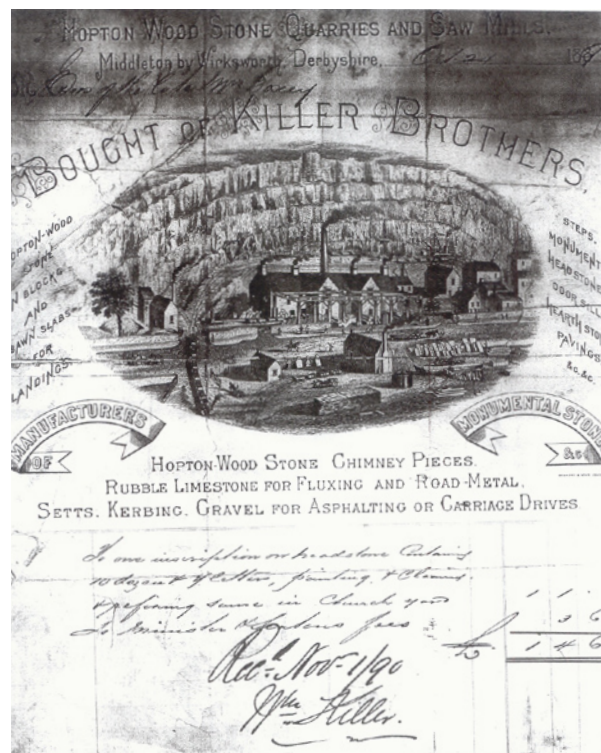 HOPTON WOOD STONE QUARRIES AND SAW MILLS.
Middleton by Wirksworth, Derbyshire, Oct 188
of the late Mr
BOUGHT OF KILLER BROTHERS,
HOPTON-WOOD
STONE
IN BLOCKS
AND
SAWN SLABS
FOR
LANDINGS
STEPS.
MONUMENT
HEADSTONE
DOOR SILL
HEARTH STON
PAVINGS
&c, &c.
MANUFACTURERS
OF
MONUMENTAL STONE
&c
HOPTON-WOOD STONE CHIMNEY PIECES.
RUBBLE LIMESTONE FOR FLUXING AND ROAD-METAL.
SETTS. KERBING. GRAVEL FOR ASPHALTING OR CARRIAGE DRIVES
To one inscription on headstone Containing
10 dozen & 4 letters, painting, & Cleaning
& refixing same in Church yard 1 1
To Minister & fees 3 6
£ 1 4 6
Recd Nov 1/90
Wm Killer.